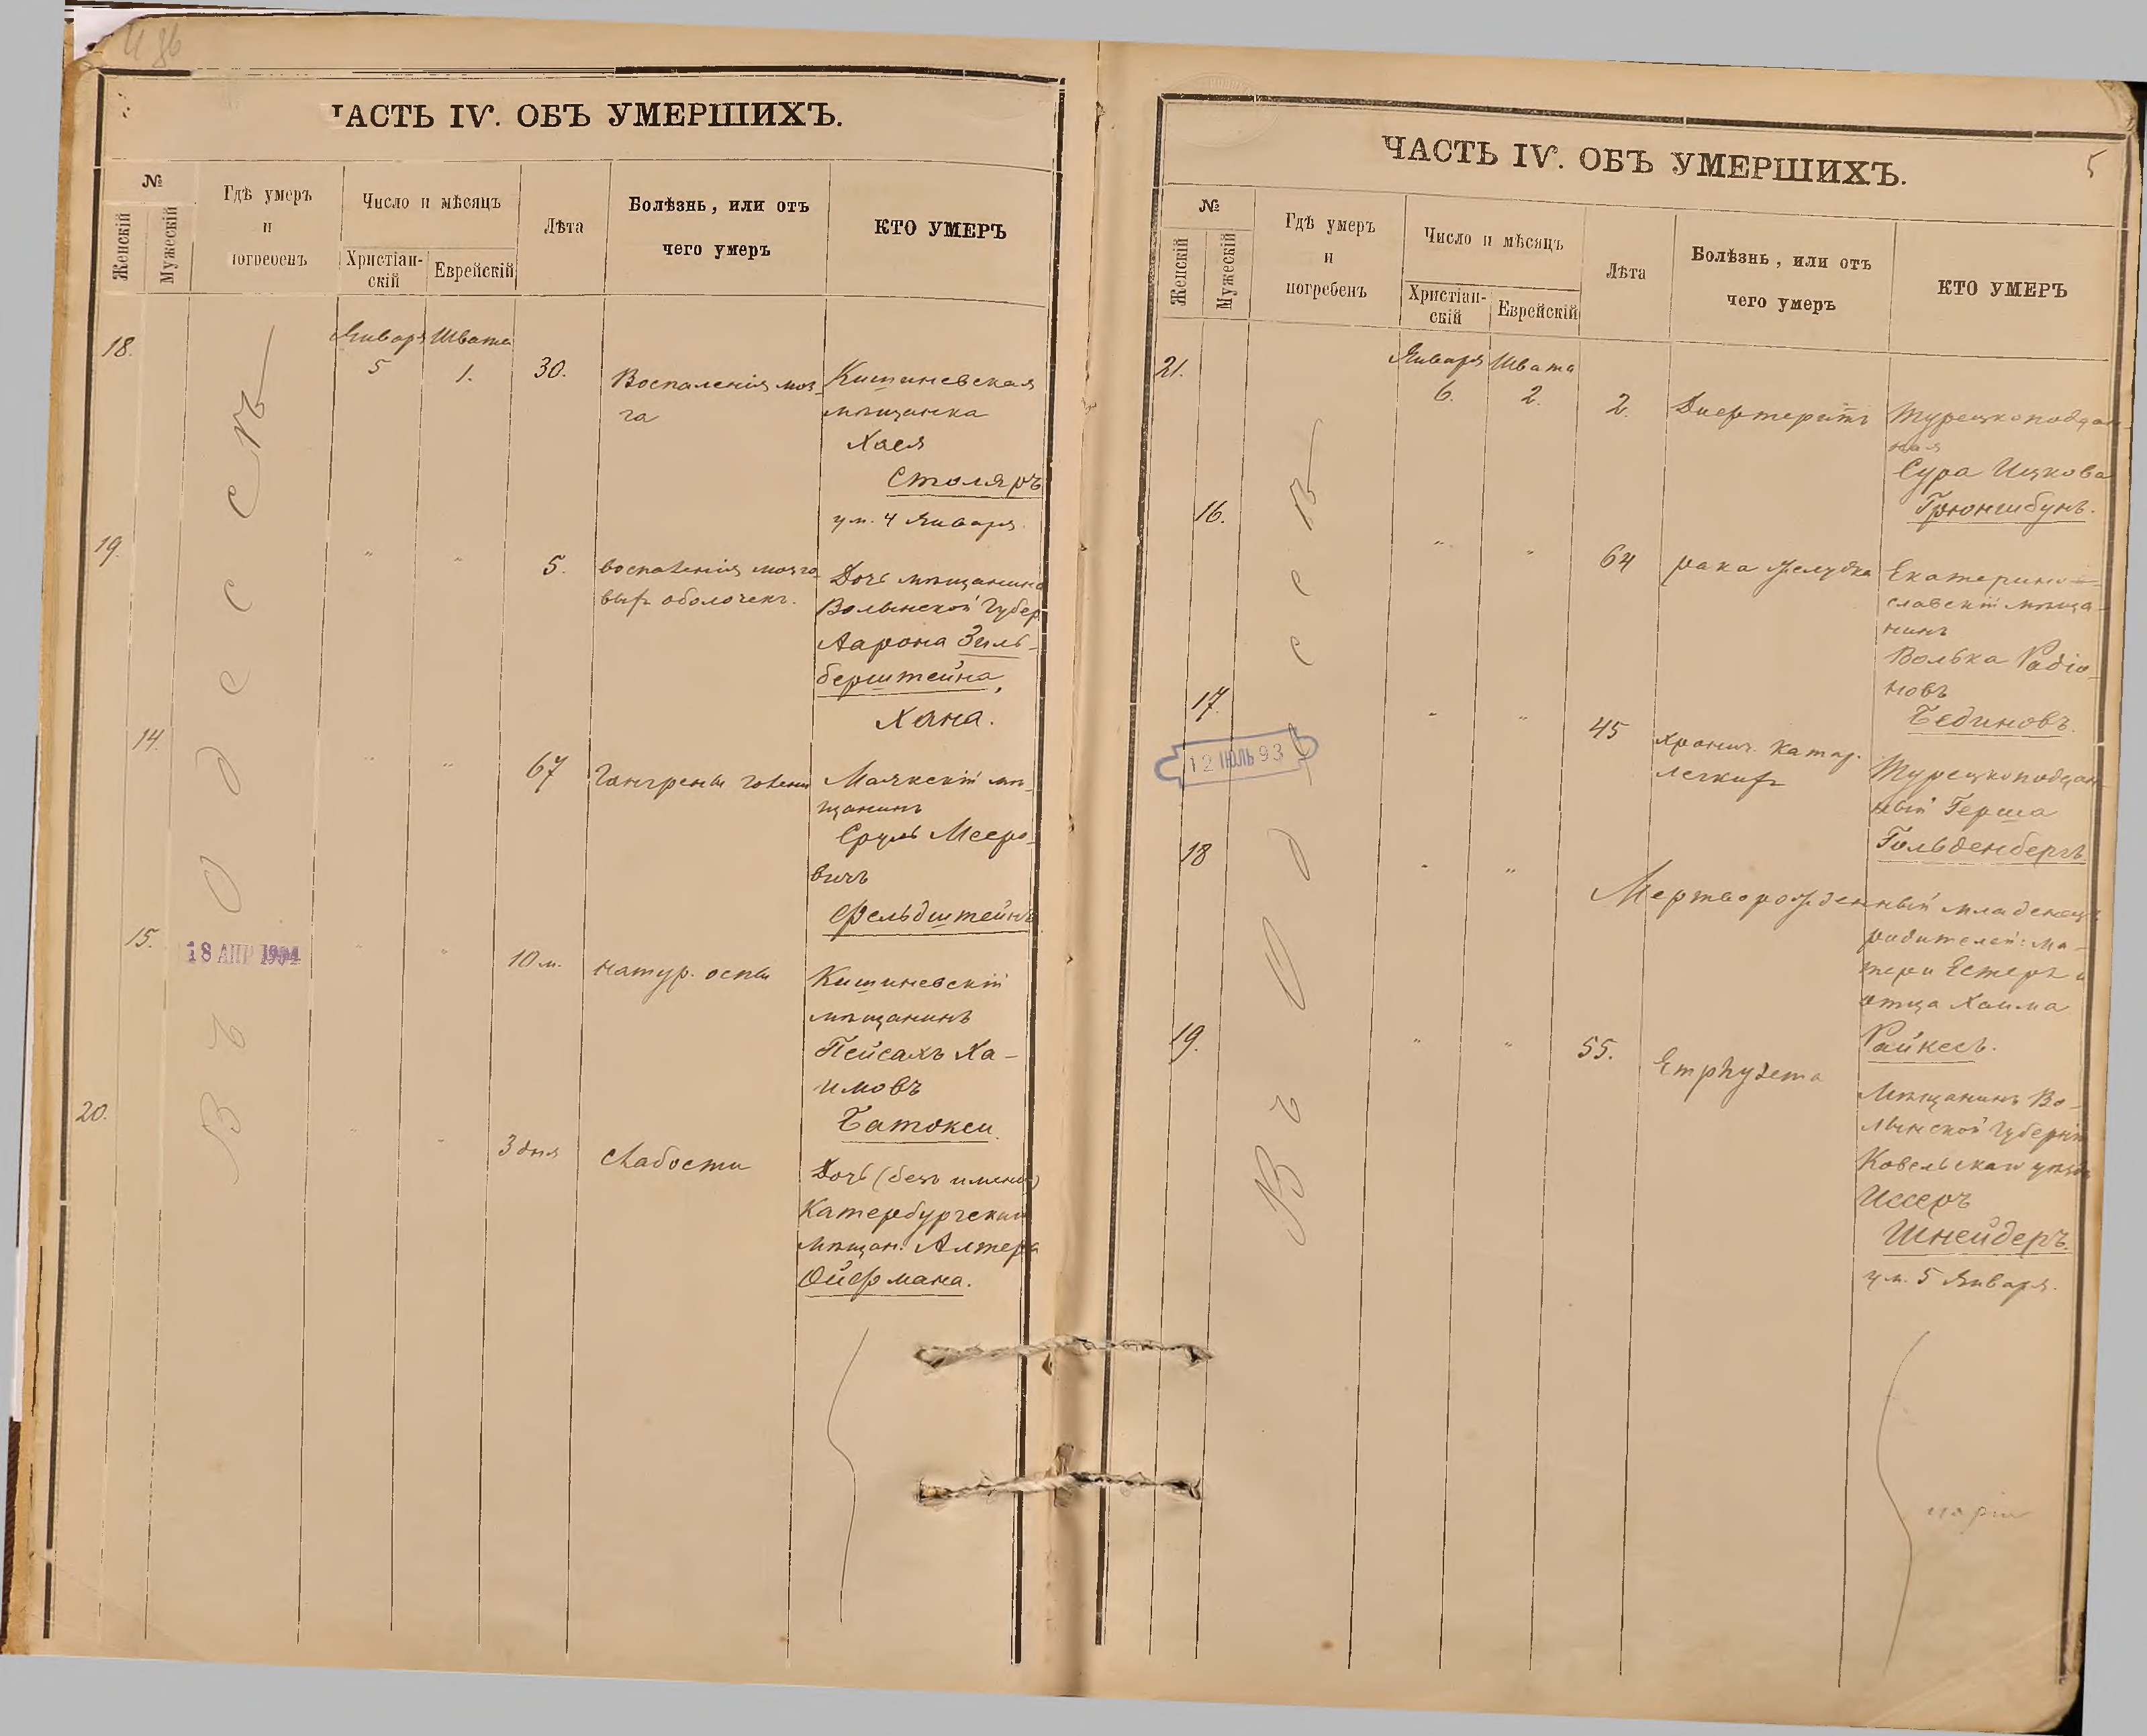 ЧАСТЬ IV. ОБЪ УМЕРШИХЪ.
№
Женскій
Мужескій
Гдѣ умеръ
и
погребенъ
Число и мѣсяцъ
Христіан-
скій
Еврейскій
Лѣта
Болѣзнь, или отъ
чего умеръ
КТО УМЕРЪ
Въ Одессѣ
18.
Января Швата
5 1.
30.
Воспаленія моз-
га
Кишиневская
мѣщанка
Хася
Столяръ
ум. 4 Января.
19.
" "
5.
воспаленія мозго-
выхъ оболочекъ.
Дочь мѣщанина
Волынской Губер.
Аарона Зиль-
берштейна,
Хана.
14.
" "
67
Гангрены голени
Маякскій мѣ-
щанинъ
Сруль Мееро-
вичъ
Фельдштейнъ
15.
18 АПР 1994
" "
10 м.
натур. оспы
Кишиневскій
мѣщанинъ
Пейсахъ Ха-
имовъ
Батокси.
20.
" "
3 дня
слабости
Дочь (безъ имени)
Катербургскаго
мѣщан. Алтера
Ойфмана.
ЧАСТЬ IV. ОБЪ УМЕРШИХЪ.
5
№
Женскій
Мужескій
Гдѣ умеръ
и
погребенъ
Число и мѣсяцъ
Христіан-
скій
Еврейскій
Лѣта
Болѣзнь, или отъ
чего умеръ
КТО УМЕРЪ
Въ Одессѣ
21.
Января Швата
6. 2.
2.
Дифтеритъ
Турецкоподдан-
ная
Сура Ицкова
Грюншбунъ.
16.
" "
64
рака желудка
Екатерино-
славскій мѣща-
нинъ
Волька Радіо-
новъ
Бединовъ.
17.
12 ІЮЛЬ 93
" "
45
хронич. катар.
легкихъ
Турецкоподдан-
ный Герша
Гольденбергъ
18
" "
Мертворожденный младенецъ
родителей: ма-
тери Естеръ и
отца Хаима
Райкесъ.
19.
" "
55.
Emphyzema
Мѣщанинъ Во-
лынской Губерніи
Ковельскаго уѣзда
Иссеръ
Шнейдеръ.
ум. 5 Января.